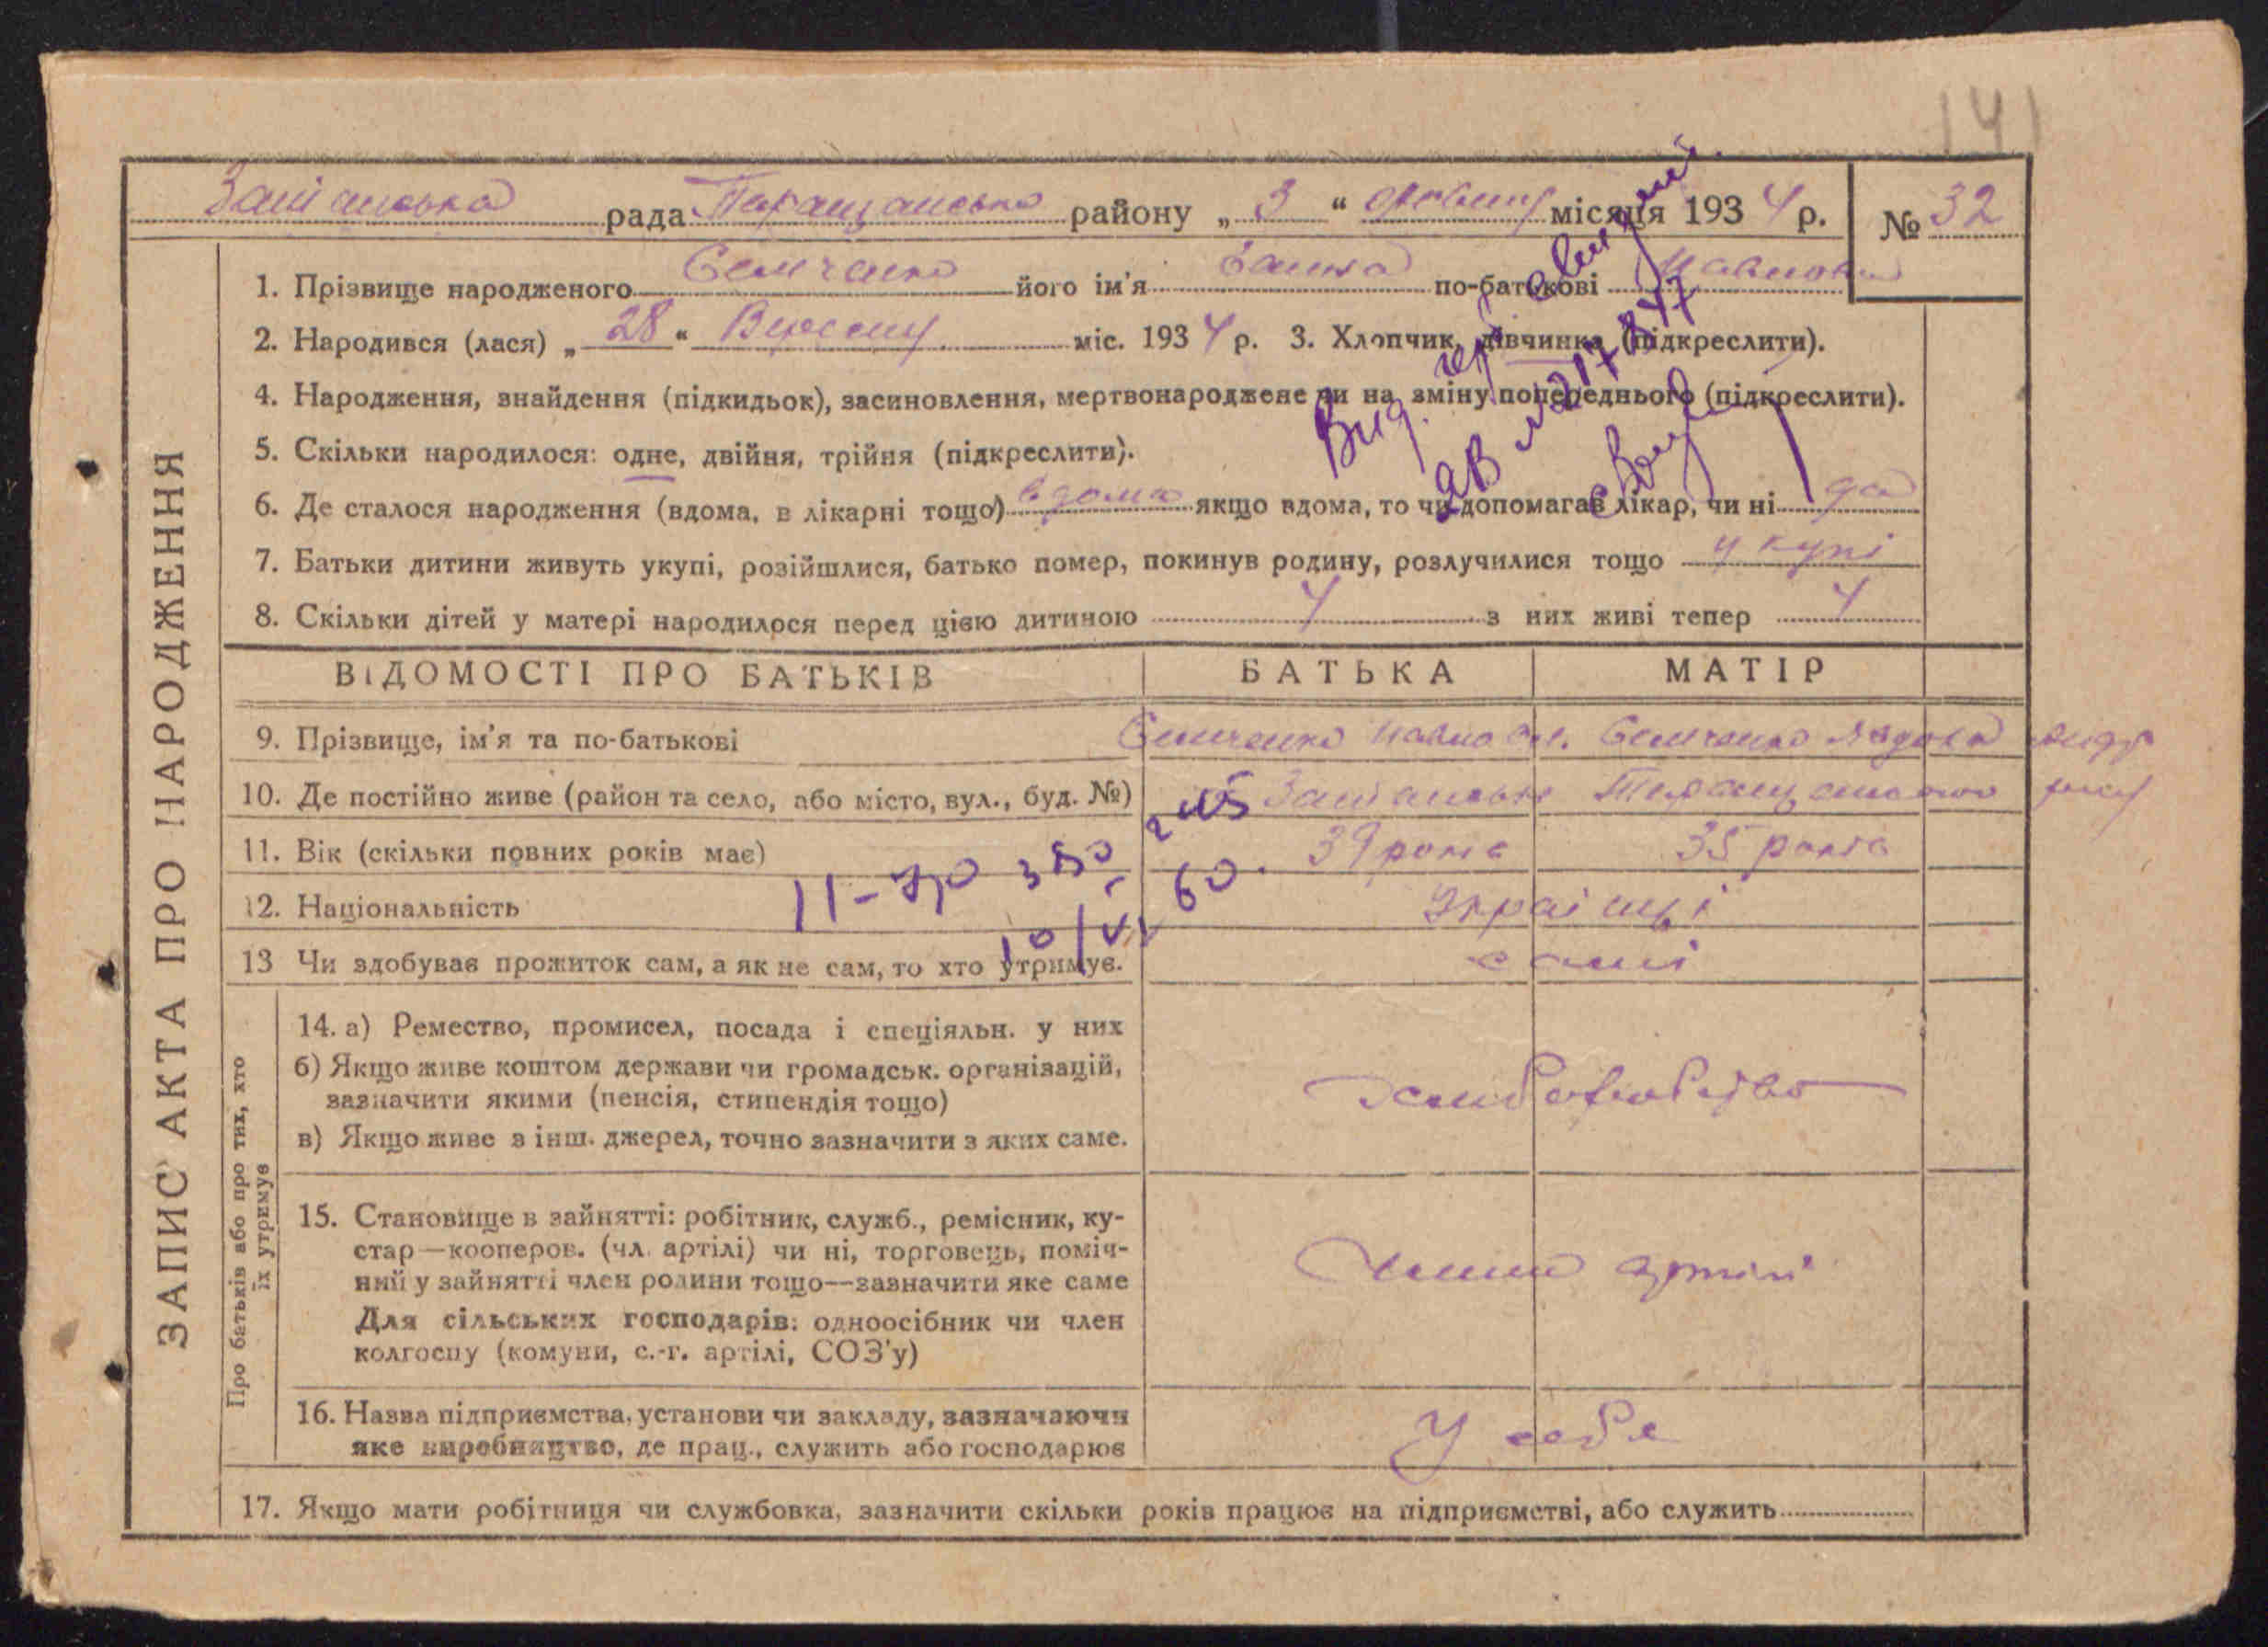 141
рада Таращансько району „ 3 “ місяця 1934 р. № 32
1. Прізвище народженого Семченко його ім'я Ганна по-батькові Павловн
2. Народився (лася) „ 28 “ Вересня міс. 1934 р. 3. Хлопчик, дівчинка (підкреслити).
4. Народження, знайдення (підкидьок), засиновлення, мертвонароджене чи на зміну попереднього (підкреслити).
5. Скільки народилося: одне, двійня, трійня (підкреслити).
6. Де сталося народження (вдома, в лікарні тощо) вдома якщо вдома, то чи допомагав лікар, чи ні да
7. Батьки дитини живуть укупі, розійшлися, батько помер, покинув родину, розлучилися тощо укупі
8. Скільки дітей у матері народилося перед цією дитиною 4 з них живі тепер 4
ВІДОМОСТІ ПРО БАТЬКІВ БАТЬКА МАТІР
9. Прізвище, ім'я та по-батькові Семченко Павло Семченко
10. Де постійно живе (район та село, або місто, вул., буд. №) Таращанського
11. Вік (скільки повних років має) 39 років 35 років
12. Національність Українці
13 Чи здобуває прожиток сам, а як не сам, то хто утримує. самі
14. а) Ремество, промисел, посада і спеціяльн. у них
б) Якщо живе коштом держави чи громадськ. організацій,
зазначити якими (пенсія, стипендія тощо)
в) Якщо живе з інш. джерел, точно зазначити з яких саме.
15. Становище в зайнятті: робітник, служб., ремісник, ку-
стар—кооперов. (чл. артілі) чи ні, торговець, поміч-
ний у зайнятті член родини тощо—зазначити яке саме
Для сільських господарів: одноосібник чи член
колгоспу (комуни, с.-г. артілі, СОЗ'у)
Члени артілі
16. Назва підприємства, установи чи закладу, зазначаючи
яке виробництво, де прац., служить або господарює
У себе
17. Якщо мати робітниця чи службовка, зазначити скільки років працює на підприємстві, або служить
ЗАПИС АКТА ПРО НАРОДЖЕННЯ
Про батьків або про тих, хто
їх утримує